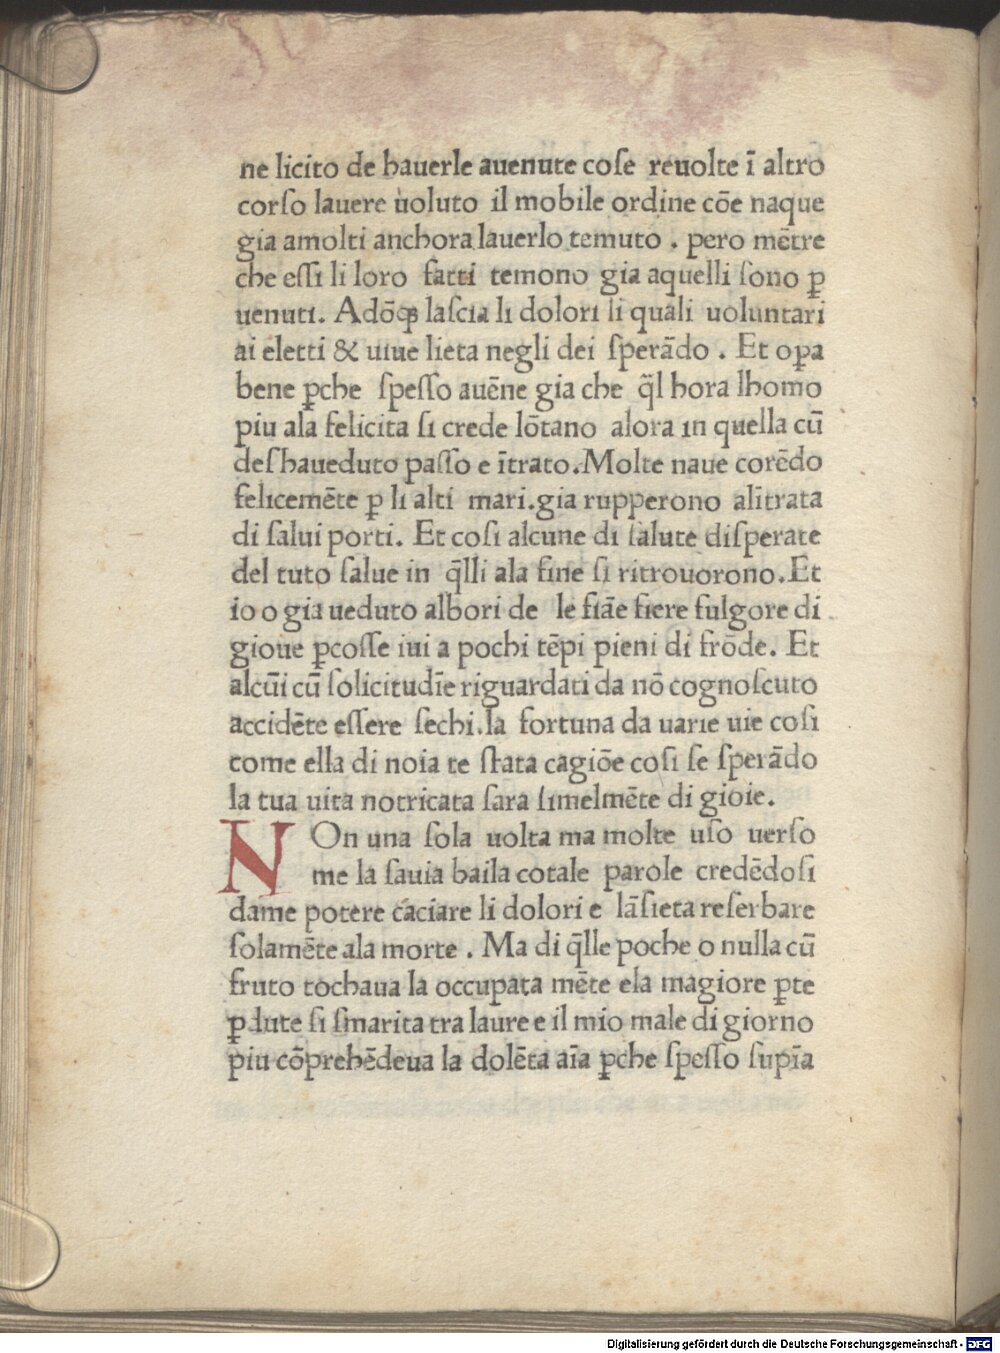 ne licito de hauerle auenute coſe reuolte ī altro
corſo lauere uoluto il mobile ordine cōe naque
gia amolti anchora lauerlo temuto . pero mētre
che eſſi li loro fatti temono gia aquelli ſono ꝑ
uenuti. Adōqꝫ laſcia li dolori li quali uoluntari
ai eletti & uiue lieta negli dei ſperādo . Et oꝑa
bene ꝑche ſpeſſo auēne gia che q̄l hora lhomo
piu ala felicita ſi crede lōtano alora in quella cū
deſhaueduto paſſo e ītrato.Molte naue corēdo
felicemēte ꝑ li alti mari.gia rupperono alītrata
di ſalui porti. Et coſi alcune di ſalute diſperate
del tuto ſalue in q̄lli ala fine ſi ritrouorono.Et
io o gia ueduto albori de le fiāe fiere fulgore di
gioue ꝑcoſſe iui a pochi tēpi pieni di frōde. Et
alcūi cū ſolicitudīe riguardati da nō cognoſcuto
accidēte eſſere ſechi.la fortuna da uarie uie coſi
come ella di noia te ſtata cagiōe coſi ſe ſperādo
la tua uita notricata ſara ſimelmēte di gioie.
NOn una ſola uolta ma molte uſo uerſo
me la ſauia baila cotale parole credēdoſi
dame potere caciare li dolori e lāſieta reſerbare
ſolamēte ala morte . Ma di q̄lle poche o nulla cū
fruto tochaua la occupata mēte ela magiore ꝑte
ꝑdute ſi ſmarita tra laure e il mio male di giorno
piu cōprehēdeua la dolēta aīa ꝑche ſpeſſo ſupīa
Digitalisierung gefördert durch die Deutsche Forschungsgemeinschaft - DFG